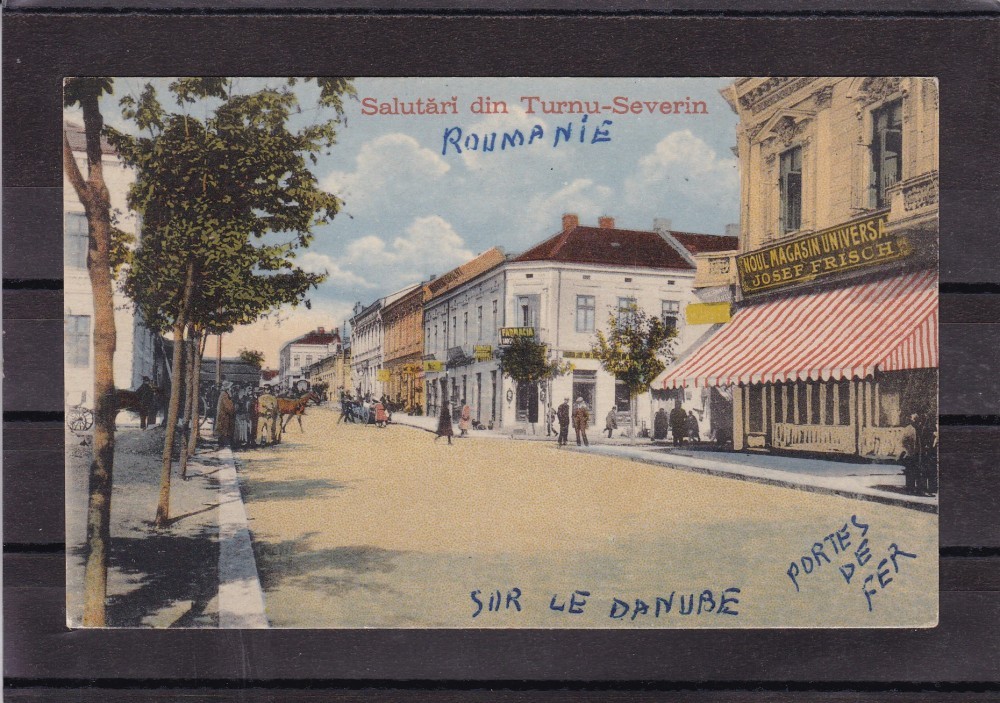 Salutări din Turnu-Severin
ROUMANIE
NOUL MAGASIN UNIVERSA
JOSEF FRISCH
FARMACIA
SUR LE DANUBE
PORTES
DE
FER